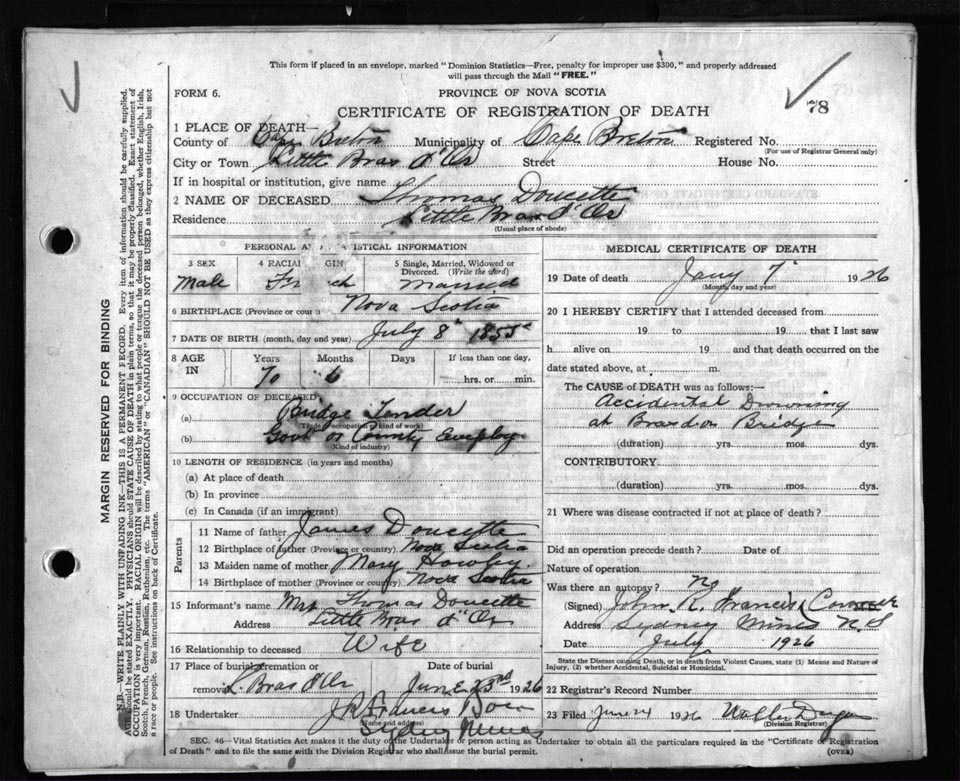 This form if placed in an envelope, marked "Dominion Statistics—Free, penalty for improper use $300," and properly addressed
will pass through the Mail "FREE."
FORM 6.
PROVINCE OF NOVA SCOTIA
CERTIFICATE OF REGISTRATION OF DEATH
78
1 PLACE OF DEATH—
County of Cape Breton Municipality of Cape Breton Registered No.
(For use of Registrar General only)
City or Town Little Bras d'Or Street House No.
If in hospital or institution, give name
2 NAME OF DECEASED Thomas Doucette
Residence Little Bras d'Or
(Usual place of abode)
PERSONAL A ISTICAL INFORMATION
3 SEX
Male
4 RACIAL GIN
Fr ch
5 Single, Married, Widowed or
Divorced. (Write the word)
Married
6 BIRTHPLACE (Province or coun Nova Scotia
7 DATE OF BIRTH (month, day and year) July 8" 1855
8 AGE
IN
Years
70
Months
6
Days
If less than one day,
hrs. or min.
9 OCCUPATION OF DECEASED
(a) Bridge Tender
(Trade, occupation or kind of work)
(b) Govt or County Employ.
(Kind of industry)
10 LENGTH OF RESIDENCE (in years and months)
(a) At place of death
(b) In province
(c) In Canada (if an immigrant)
Parents
11 Name of father James Doucette
12 Birthplace of father (Province or country) Nova Scotia
13 Maiden name of mother Mary
14 Birthplace of mother (Province or county) Nova Scotia
15 Informant's name Mrs Thomas Doucette
Address Little Bras d'Or
16 Relationship to deceased Wife
17 Place of burial, cremation or
removal L. Bras d'Or
Date of burial
June 23rd 1926
18 Undertaker J R Francis
Sydney Mines
MEDICAL CERTIFICATE OF DEATH
19 Date of death Jany 7" 1926
(Month, day and year)
20 I HEREBY CERTIFY that I attended deceased from
19 to 19 that I last saw
h alive on 19 and that death occurred on the
date stated above, at m.
The CAUSE OF DEATH was as follows:—
Accidental Drowning
at Bridge
(duration) yrs. mos. dys.
CONTRIBUTORY
(duration) yrs. mos. dys.
21 Where was disease contracted if not at place of death?
Did an operation precede death? Date of
Nature of operation
Was there an autopsy? No
(Signed) John R. Francis Coroner
Address Sydney Mines N.S
Date July 1926
State the Disease causing Death, or in death from Violent Causes, state (1) Means and Nature of
Injury, (2) whether Accidental, Suicidal or Homicidal.
22 Registrar's Record Number
23 Filed June 24 1926
(Division Registrar)
SEC. 46—Vital Statistics Act makes it the duty of the Undertaker or person acting as Undertaker to obtain all the particulars required in the "Certificate of Registration
of Death" and to file the same with the Division Registrar who shall issue the burial permit.
(OVER)
MARGIN RESERVED FOR BINDING
N.B.—WRITE PLAINLY WITH UNFADING INK—THIS IS A PERMANENT RECORD. Every item of information should be carefully supplied.
AGE should be stated EXACTLY. PHYSICIANS should STATE CAUSE OF DEATH in plain terms, so that it may be properly classified. Exact statement of
OCCUPATION is very important. RACIAL ORIGIN will be described by stating to what people or tongue the deceased person belonged, whether English, Irish,
Scotch, French, German, Russian, Ruthenian, etc. The terms "AMERICAN" or "CANADIAN" SHOULD NOT BE USED as they express citizenship but not
a race or people. See instructions on back of Certificate.